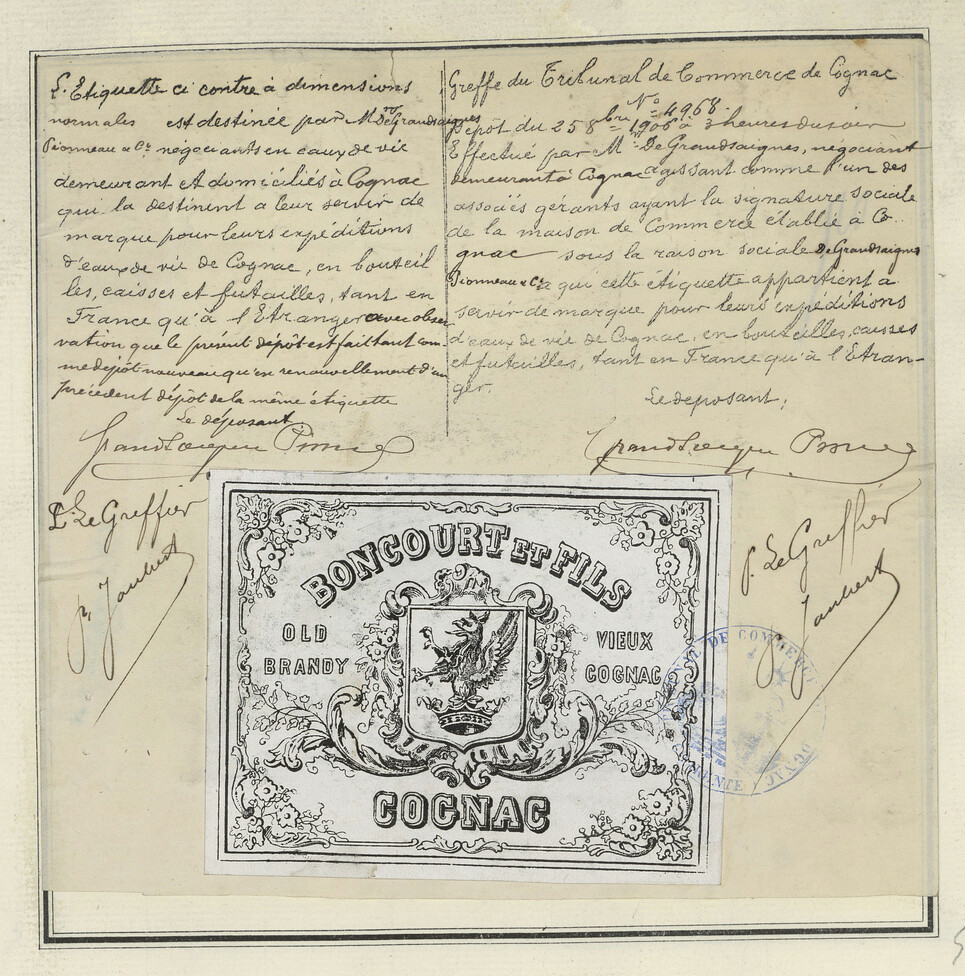 L'Etiquette ci contre à dimensions
normales est destinée par MM. De Grandsaignes
Pionneau & Cie négociants en eaux de vie
demeurant et domiciliés à Cognac
qui la destinent a leur servir de
marque pour leurs expéditions
d'eaux de vie de Cognac, en bouteil
les, caisses et futailles, tant en
France qu'à l'Etranger avec obser
vation que le présent dépôt est fait tant com-
me dépôt nouveau qu'en renouvellement d'un
précédent dépôt de la même étiquette
Le déposant
P. Le Greffier
Jaubert
Greffe du Tribunal de Commerce de Cognac
No 4968.
Dépôt du 25 8bre 1906 à 3 heures du soir
Effectué par M. De Grandsaignes, négociant
demeurant à Cognac agissant comme l'un des
associés gérants ayant la signature sociale
de la maison de Commerce établie à Co-
gnac sous la raison sociale De Grandsaignes
Pionneau & Cie à qui cette étiquette appartient a
servir de marque pour leurs expéditions
d'eaux de vie de Cognac, en bouteilles, caisses
et futailles, tant en France qu'à l'Etran-
ger.
Le déposant,
P. Le Greffier
Jaubert
BONCOURT ET FILS
OLD
BRANDY
VIEUX
COGNAC
COGNAC
DE COMMERCE
COGNAC